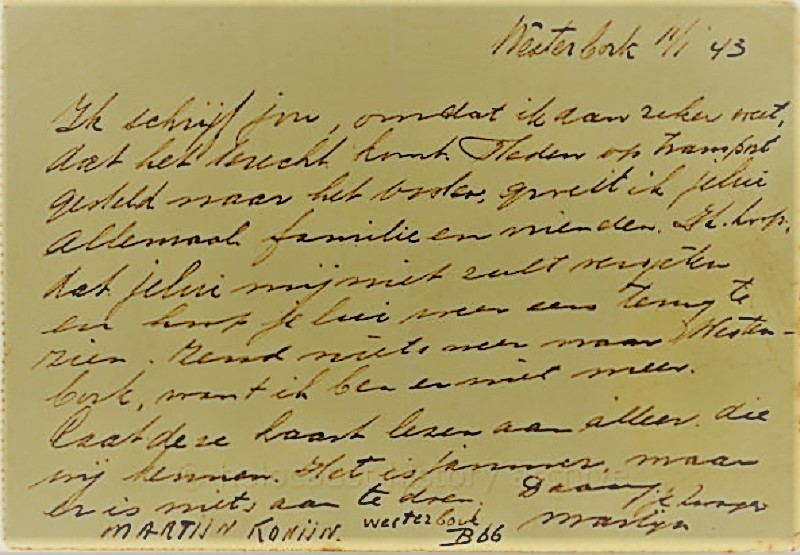 Westerbork 11/1 43
Ik schrijf jou, omdat ik dan zeker weet,
dat het terecht komt. Heden op transport
gesteld naar het Oosten, groet ik jelui
allemaal familie en vrienden. Ik hoop,
dat jelui mij niet zult vergeten
en hoop jelui weer eens terug te
zien. Zend niets meer naar Wester-
bork, want ik ben er niet meer.
Laat deze kaart lezen aan allen die
mij kennen. Het is jammer, maar
er is niets aan te doen. Daag
Martijn
MARTIJN KONIJN. Westerbork
B66